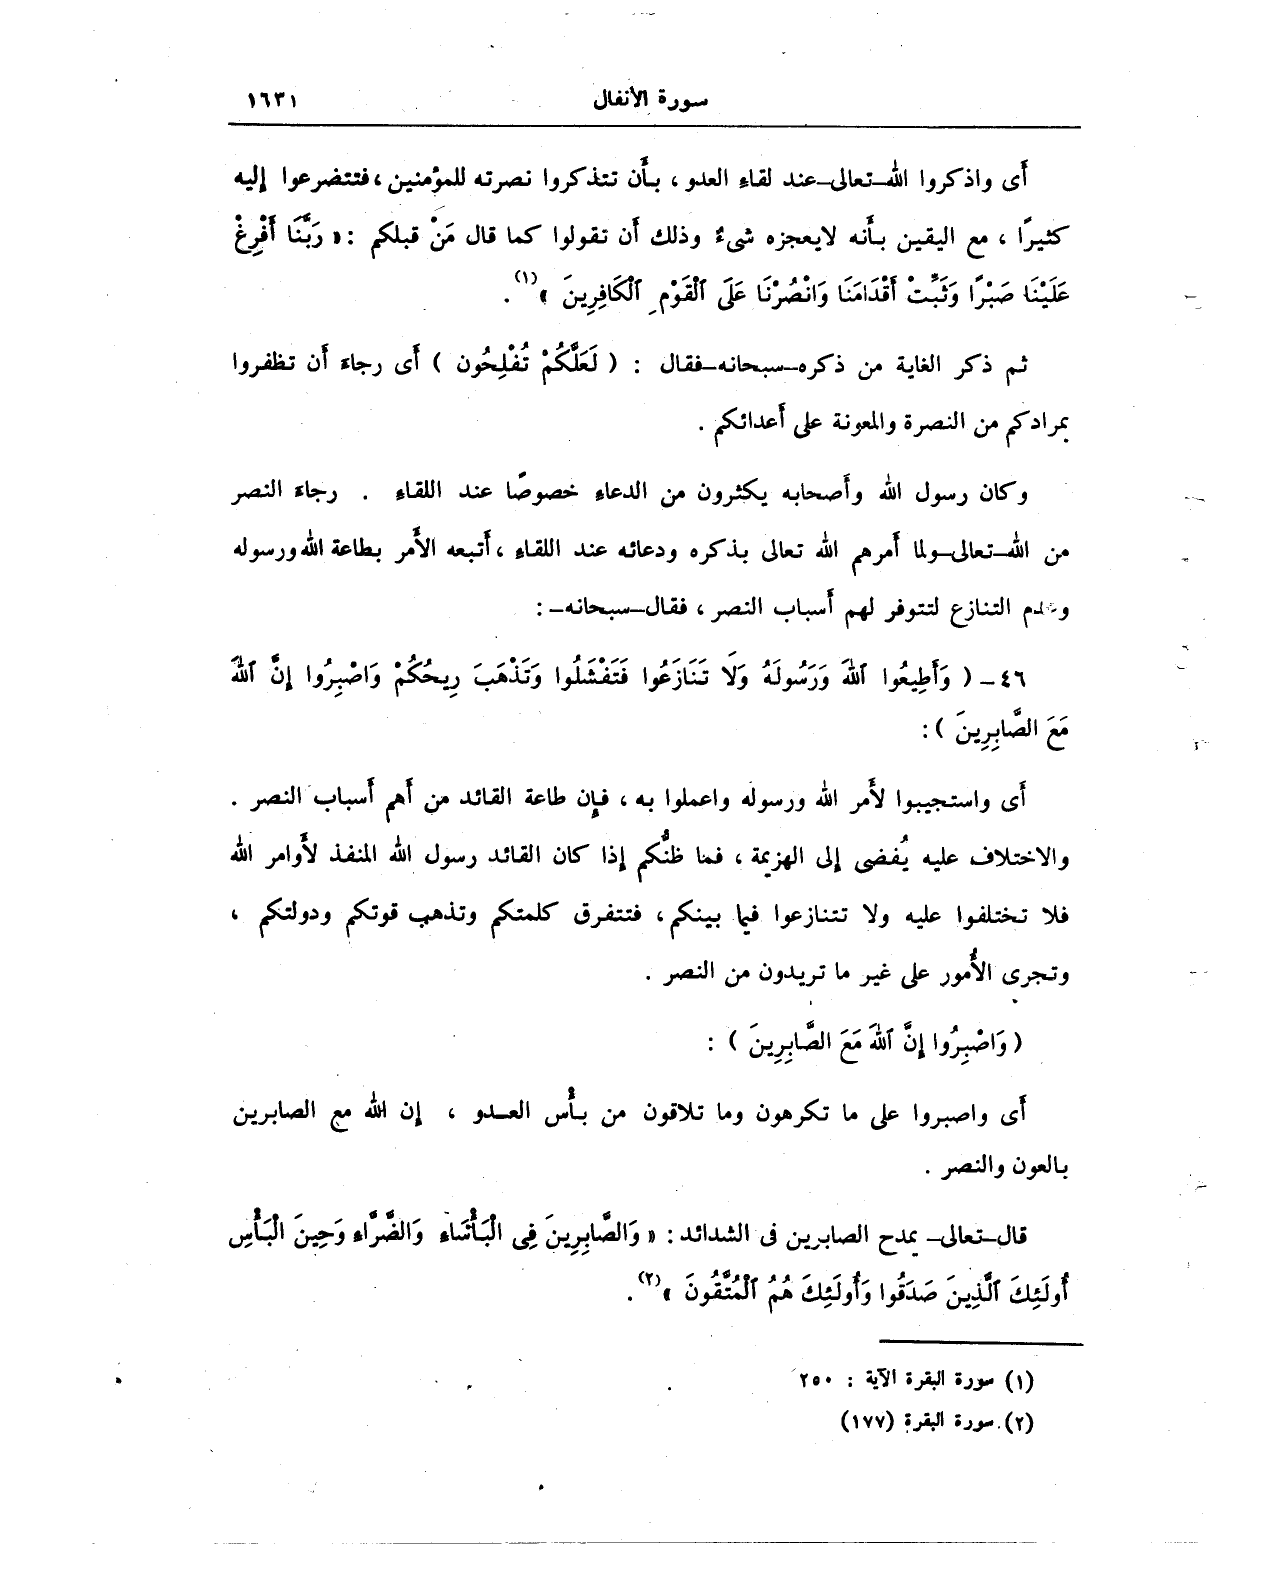 سورة الأنفال ١٦٣١
أى واذكروا الله-تعالى-عند لقاءِ العدو ، بأن تتذكروا نصرته للمؤمنين ، فتتضرعوا إليه
كثيرًا ، مع اليقين بأنه لايعجزه شىءٌ وذلك أن تقولوا كما قال مَنْ قبلكم : « رَبَّنَا أَفْرِغْ
عَلَيْنَا صَبْرًا وَثَبِّتْ أَقْدَامَنَا وَانْصُرْنَا عَلَى ٱلْقَوْمِ ٱلْكَافِرِينَ »(١) .
ثم ذكر الغاية من ذكره-سبحانه-فقال : ( لَعَلَّكُمْ تُفْلِحُون ) أى رجاءَ أن تظفروا
بمرادكم من النصرة والمعونة على أعدائكم .
وكان رسول الله وأصحابه يكثرون من الدعاءِ خصوصًا عند اللقاءِ . رجاءَ النصر
من الله-تعالى-ولما أمرهم الله تعالى بذكره ودعائه عند اللقاءِ ، أتبعه الأمر بطاعة الله ورسوله
وعدم التنازع لتتوفر لهم أسباب النصر ، فقال-سبحانه- :
٤٦ - ( وَأَطِيعُوا ٱللهَ وَرَسُولَهُ وَلَا تَنَازَعُوا فَتَفْشَلُوا وَتَذْهَبَ رِيحُكُمْ وَاصْبِرُوا إِنَّ ٱللهَ
مَعَ الصَّابِرِينَ ) :
أى واستجيبوا لأمر الله ورسوله واعملوا به ، فإن طاعة القائد من أهم أسباب النصر .
والاختلاف عليه يُفضى إلى الهزيمة ، فما ظنُّكم إذا كان القائد رسول الله المنفذ لأوامر الله
فلا تختلفوا عليه ولا تتنازعوا فيما بينكم ، فتتفرق كلمتكم وتذهب قوتكم ودولتكم ،
وتجرى الأُمور على غير ما تريدون من النصر .
( وَاصْبِرُوا إِنَّ ٱللهَ مَعَ الصَّابِرِينَ ) :
أى واصبروا على ما تكرهون وما تلاقون من بأْس العـدو ، إن الله مع الصابرين
بالعون والنصر .
قال-تعالى- يمدح الصابرين فى الشدائد : « وَالصَّابِرِينَ فِى الْبَأْسَاءِ وَالضَّرَّاءِ وَحِينَ الْبَأْسِ
أُولَئِكَ ٱلَّذِينَ صَدَقُوا وَأُولَئِكَ هُمُ ٱلْمُتَّقُونَ »(٢) .
(١) سورة البقرة الآية : ٢٥٠
(٢) سورة البقرة (١٧٧)